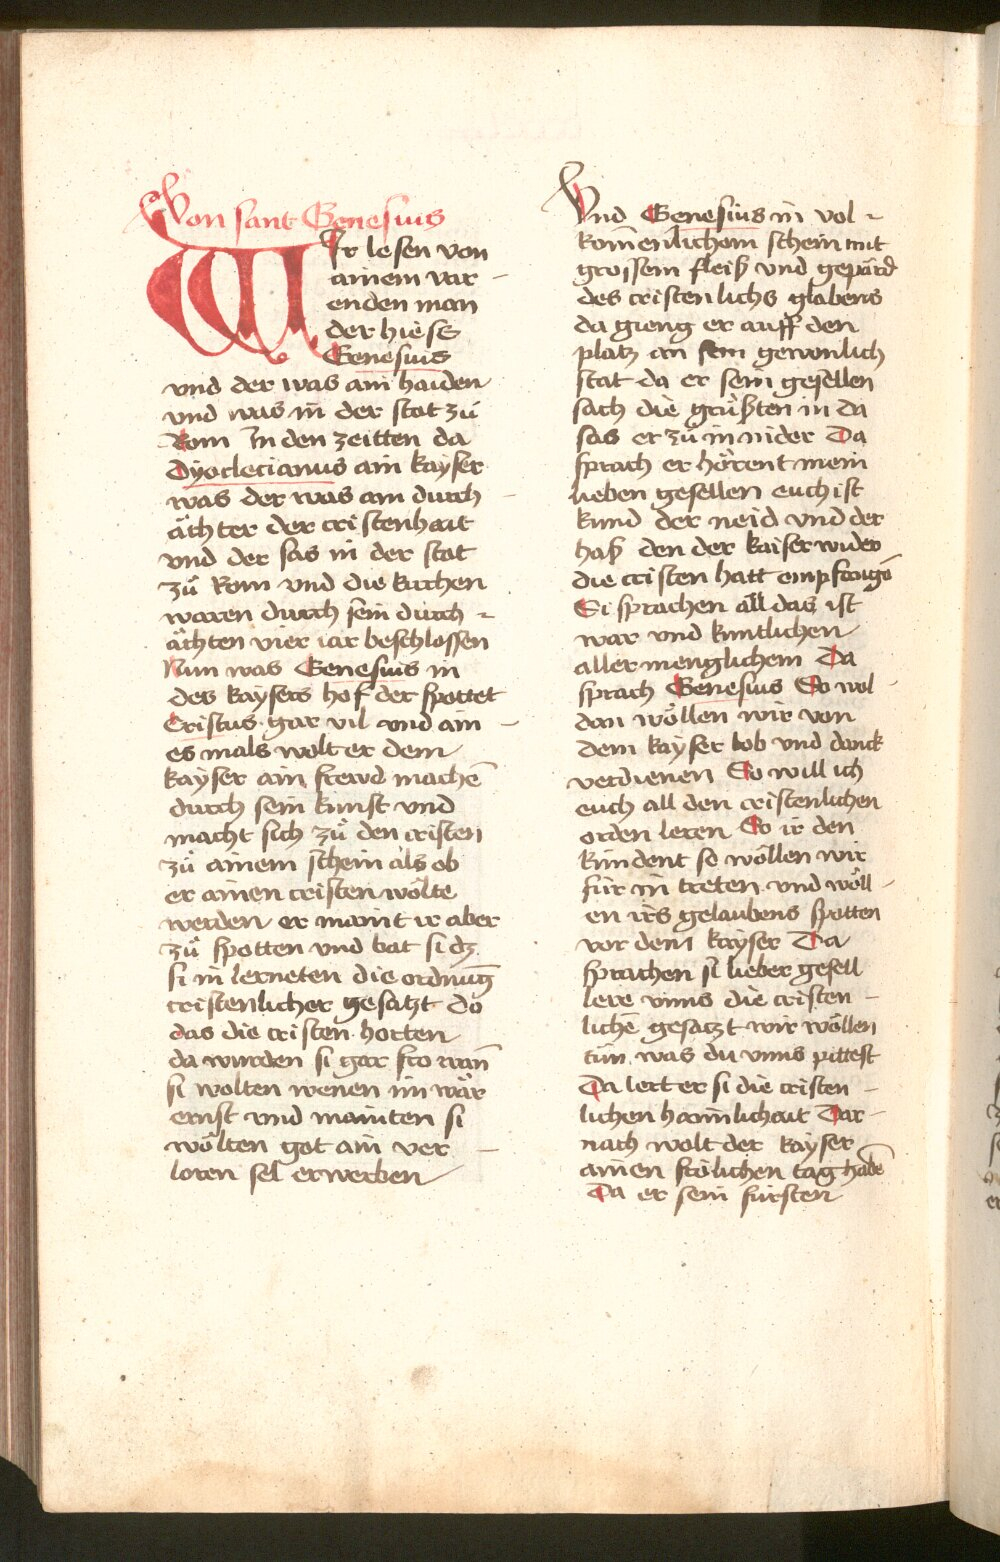 Von sant Genesius
WIr lesen von
ainem var
enden man
der hiess
Genesius
vnd der was ain haiden
vnd was in der stat zů
Rom In den zeitten da
Dyoclecianus ain kayser
was der was ain durch
ächter der cristenhait
vnd der sas in der stat
zů Rom vnd die kirchen
waren durch sein durch
ächten vier iar beschlossen
Nun was Genesius in
des kaysers hof der spottet
Cristus gar vil vnd ain
es mals wolt er dem
kayser ain frewd machē
durch sein kunst vnd
macht sich zů den cristen
zů ainem schein als ob
er ainen cristen wölte
werden er maint ir aber
zů spotten vnd bat si dz
si in lerneten die ordnūg
cristenlicher gesatzt do
das die cristen horten
da wurden si gar fro wan̄
si wolten wenen im wär
ernst vnd mainten si
wölten got ain ver
loren sel erwerben
Vnd Genesius in vol
kom̄enlichem schein mit
grossem fleiß vnd gepärd
des cristenlichs glabens
da gieng er auff den
platz an sein gewonlich
stat da er sein gesellen
sach die grůßten in da
sas er zů in nider Da
sprach er hörent mein
lieben gesellen euch ist
kund der neid vnd der
haß den der kaiser wider
die cristen hatt empfangē
Si sprachen all das ist
war vnd kuntlichen
aller menglichem Da
sprach Genesius So wol
dan wöllen wir von
dem kayser lob vnd danck
verdienen So will ich
euch all den cristenlichen
orden leren So ir den
kündent so wöllen wir
für in treten vnd wöll
en irs gelaubens spotten
vor dem kayser Da
sprachen si lieber gesell
lere vnns die cristen
lichē gesatzt wir wöllen
tůn was du vnns pittest
Da lert er si die cristen
lichen haimlichait Dar
nach wolt der kayser
ainen frölichen tag habē
Da er sein fürsten